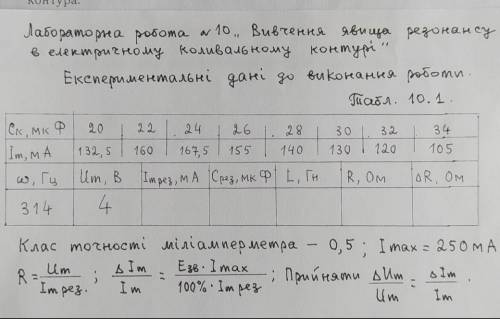 контура.
Лабораторна робота №10 „Вивчення явища резонансу
в електричному коливальному контурі"
Експериментальні дані до виконання роботи.
Табл. 10.1.
Cк, мк Ф 20 22 24 26 28 30 32 34
Im, мА 132,5 160 167,5 155 140 130 120 105
ω, Гц Um, В Im рез, мА Cрез, мк Ф L, Гн R, Ом ΔR, Ом
314 4
Клас точності міліамперметра – 0,5; Imax = 250 мА
R = Um / Im рез. ; ΔIm / Im = Eзв · Imax / 100% · Im рез ; Прийняти ΔUm / Um = ΔIm / Im .